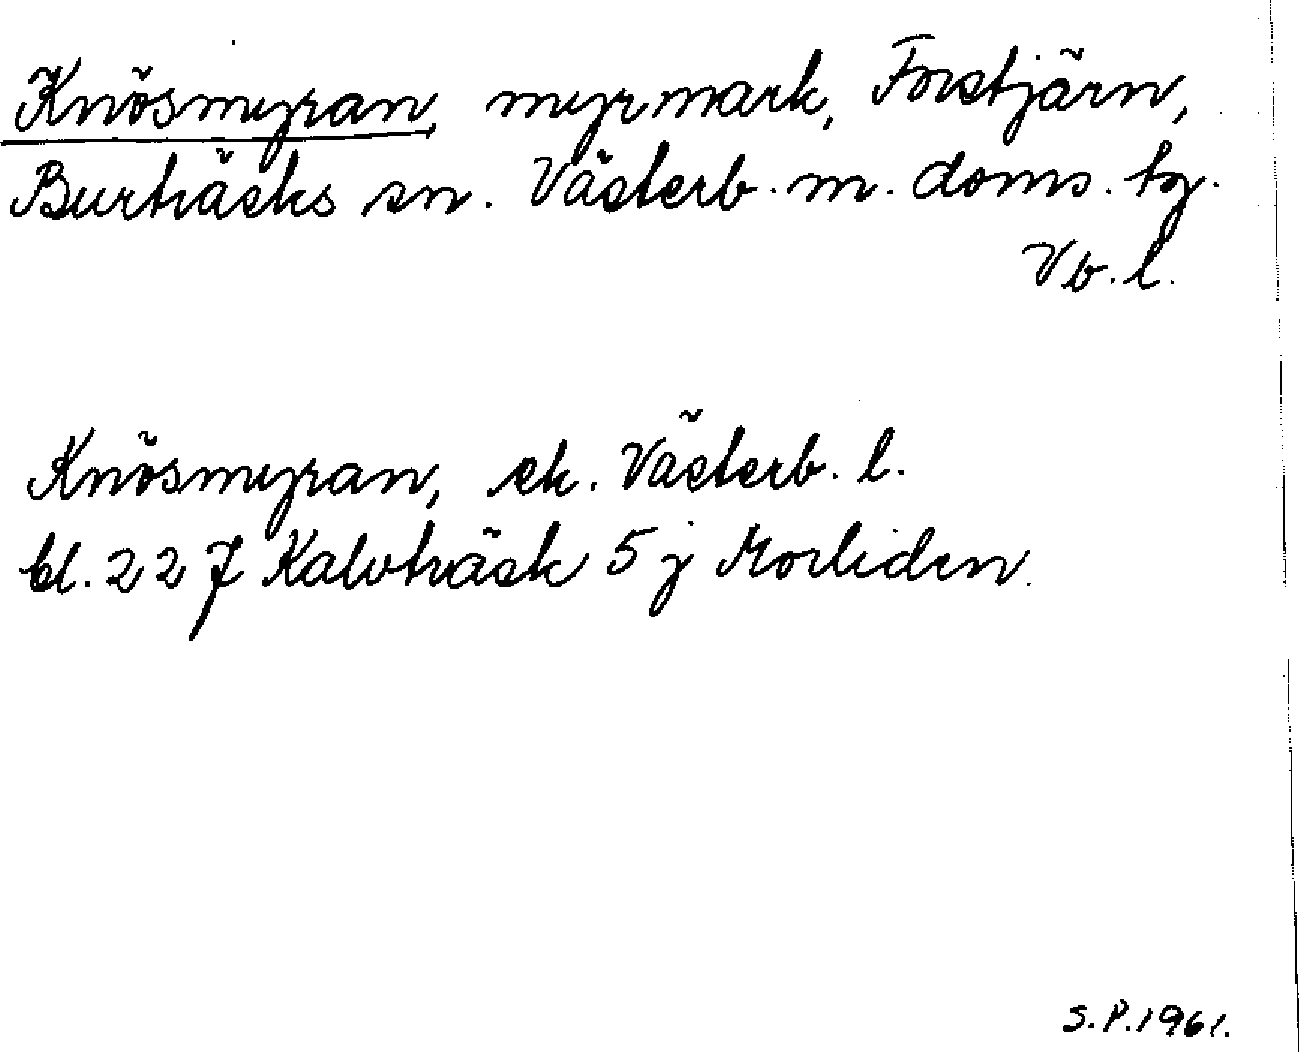 Knösmyran, myrmark, Forstjärn,
Burträsks sn. Västerb. m. doms. tg.
Vb. l.
Knösmyran, ek. Västerb. l.
bl. 22 J Kalvträsk 5 j Morliden.
S.P. 1961.